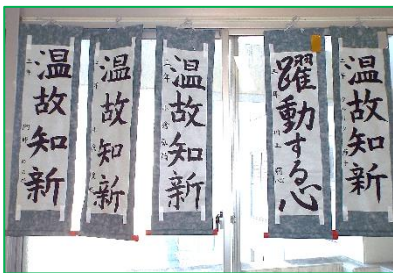 温故知新
温故知新
温故知新
躍動する心
温故知新